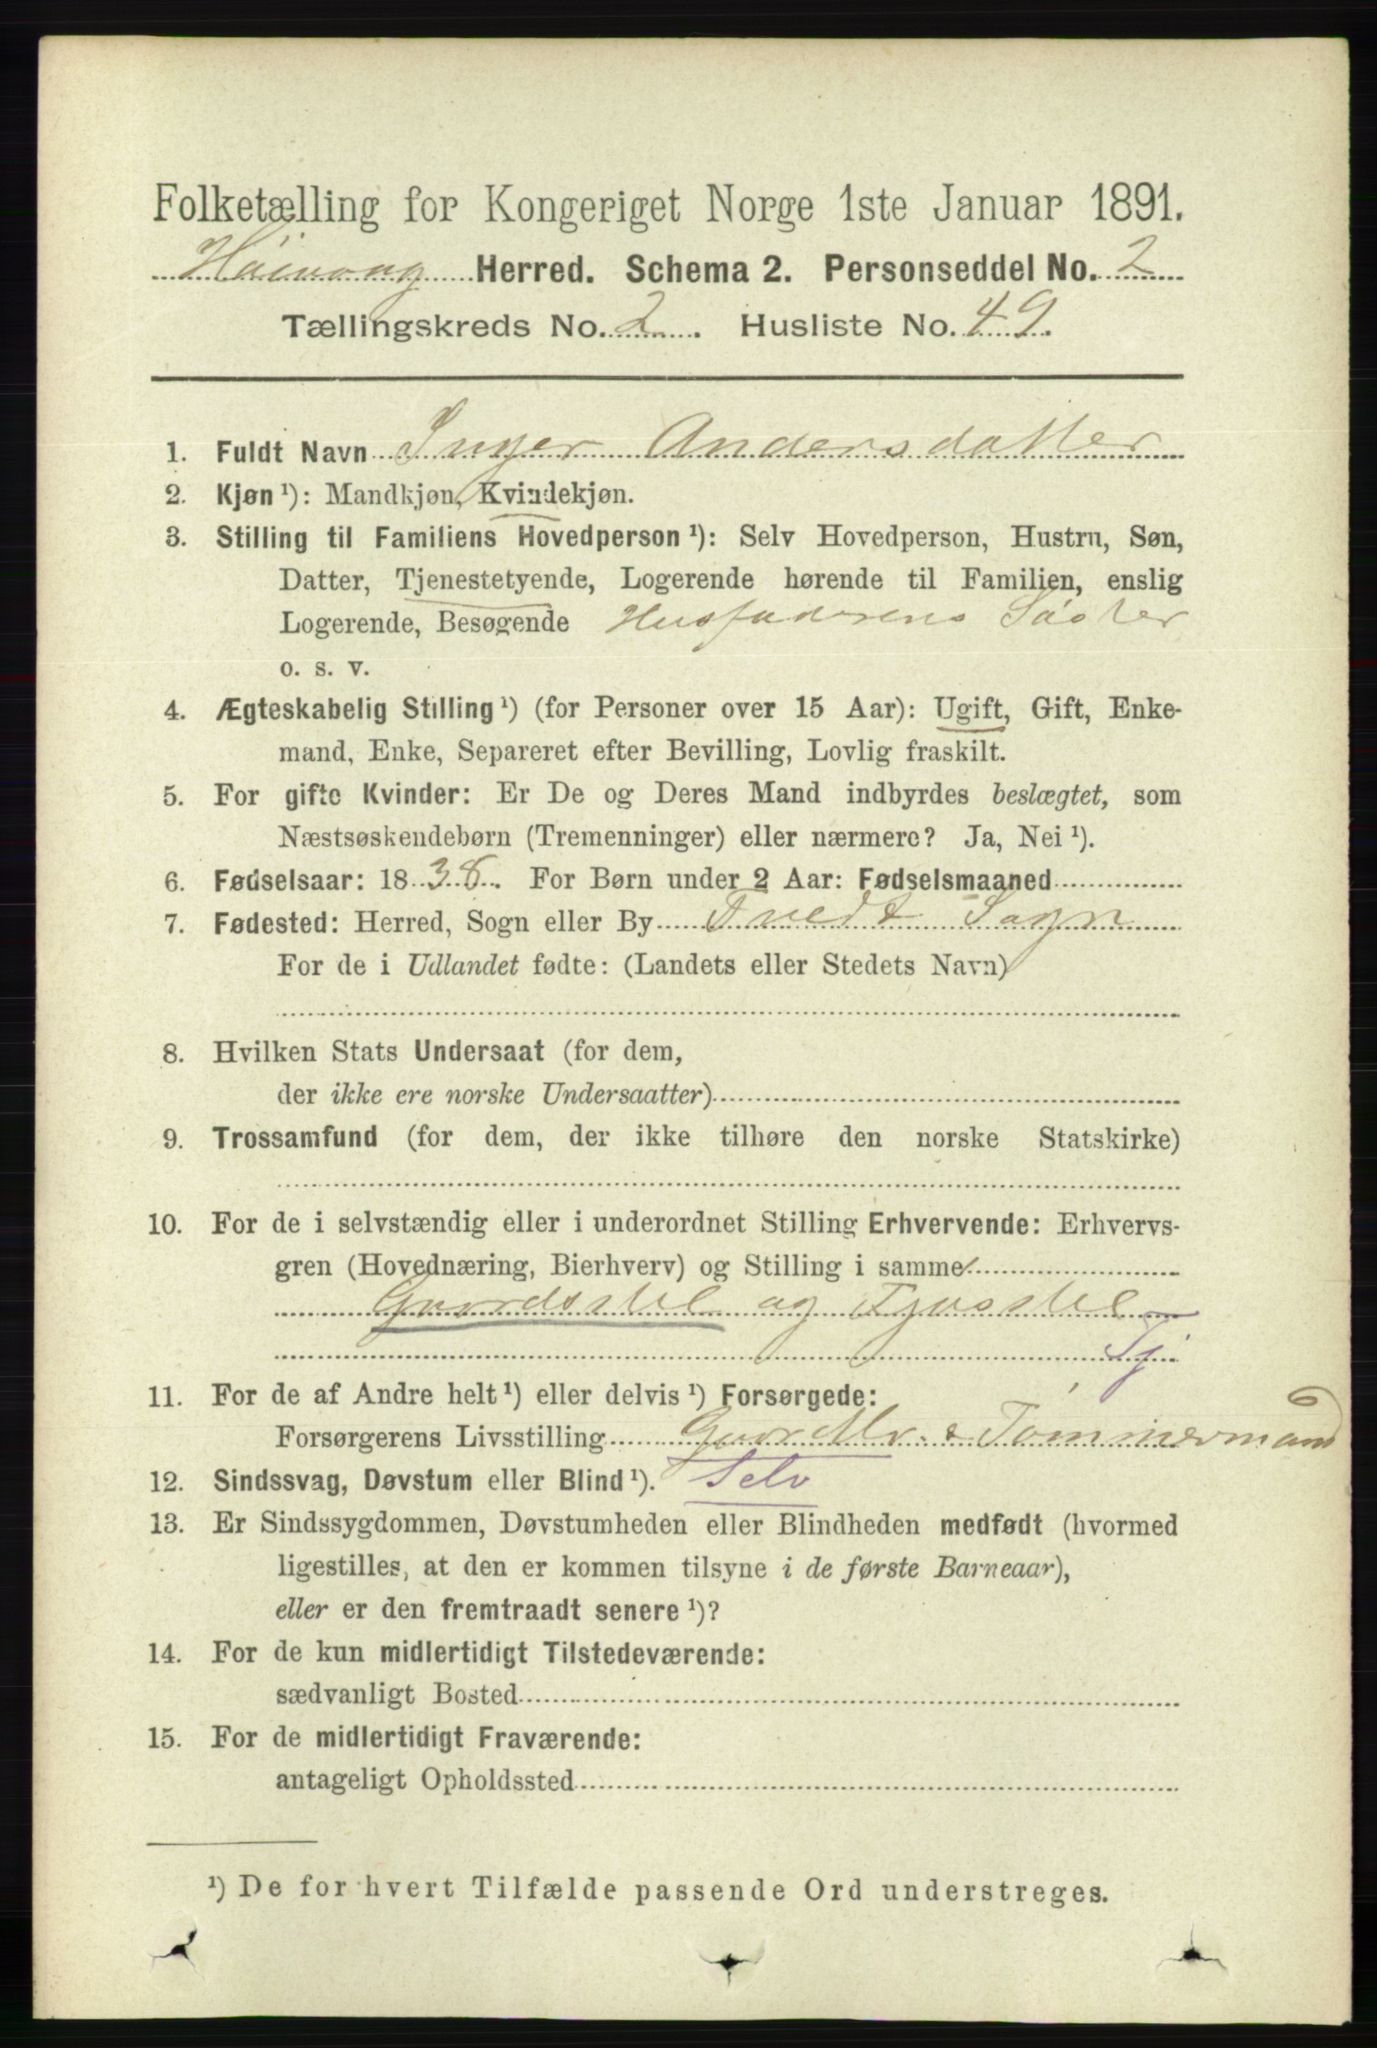 Folketælling for Kongeriget Norge 1ste Januar 1891.
Høivaag Herred. Schema 2. Personseddel No. 2
Tællingskreds No. 2. Husliste No. 49.
1. Fuldt Navn Inger Andersdatter
2. Kjøn ¹): Mandkjøn, Kvindekjøn.
3. Stilling til Familiens Hovedperson ¹): Selv Hovedperson, Hustru, Søn,
Datter, Tjenestetyende, Logerende hørende til Familien, enslig
Logerende, Besøgende Husfaderens Søster
o. s. v.
4. Ægteskabelig Stilling ¹) (for Personer over 15 Aar): Ugift, Gift, Enke-
mand, Enke, Separeret efter Bevilling, Lovlig fraskilt.
5. For gifte Kvinder: Er De og Deres Mand indbyrdes beslægtet, som
Næstsøskendebørn (Tremenninger) eller nærmere? Ja, Nei ¹).
6. Fødselsaar: 1838. For Børn under 2 Aar: Fødselsmaaned
7. Fødested: Herred, Sogn eller By Tvedt Sogn
For de i Udlandet fødte: (Landets eller Stedets Navn)
8. Hvilken Stats Undersaat (for dem,
der ikke ere norske Undersaatter)
9. Trossamfund (for dem, der ikke tilhøre den norske Statskirke)
10. For de i selvstændig eller i underordnet Stilling Erhvervende: Erhvervs-
gren (Hovednæring, Bierhverv) og Stilling i samme
Gaardsstel og Fjøsstel
Tj
11. For de af Andre helt ¹) eller delvis ¹) Forsørgede:
Forsørgerens Livsstilling & Tømmermand
12. Sindssvag, Døvstum eller Blind ¹). Selv
13. Er Sindssygdommen, Døvstumheden eller Blindheden medfødt (hvormed
ligestilles, at den er kommen tilsyne i de første Barneaar),
eller er den fremtraadt senere ¹)?
14. For de kun midlertidigt Tilstedeværende:
sædvanligt Bosted
15. For de midlertidigt Fraværende:
antageligt Opholdssted
¹) De for hvert Tilfælde passende Ord understreges.